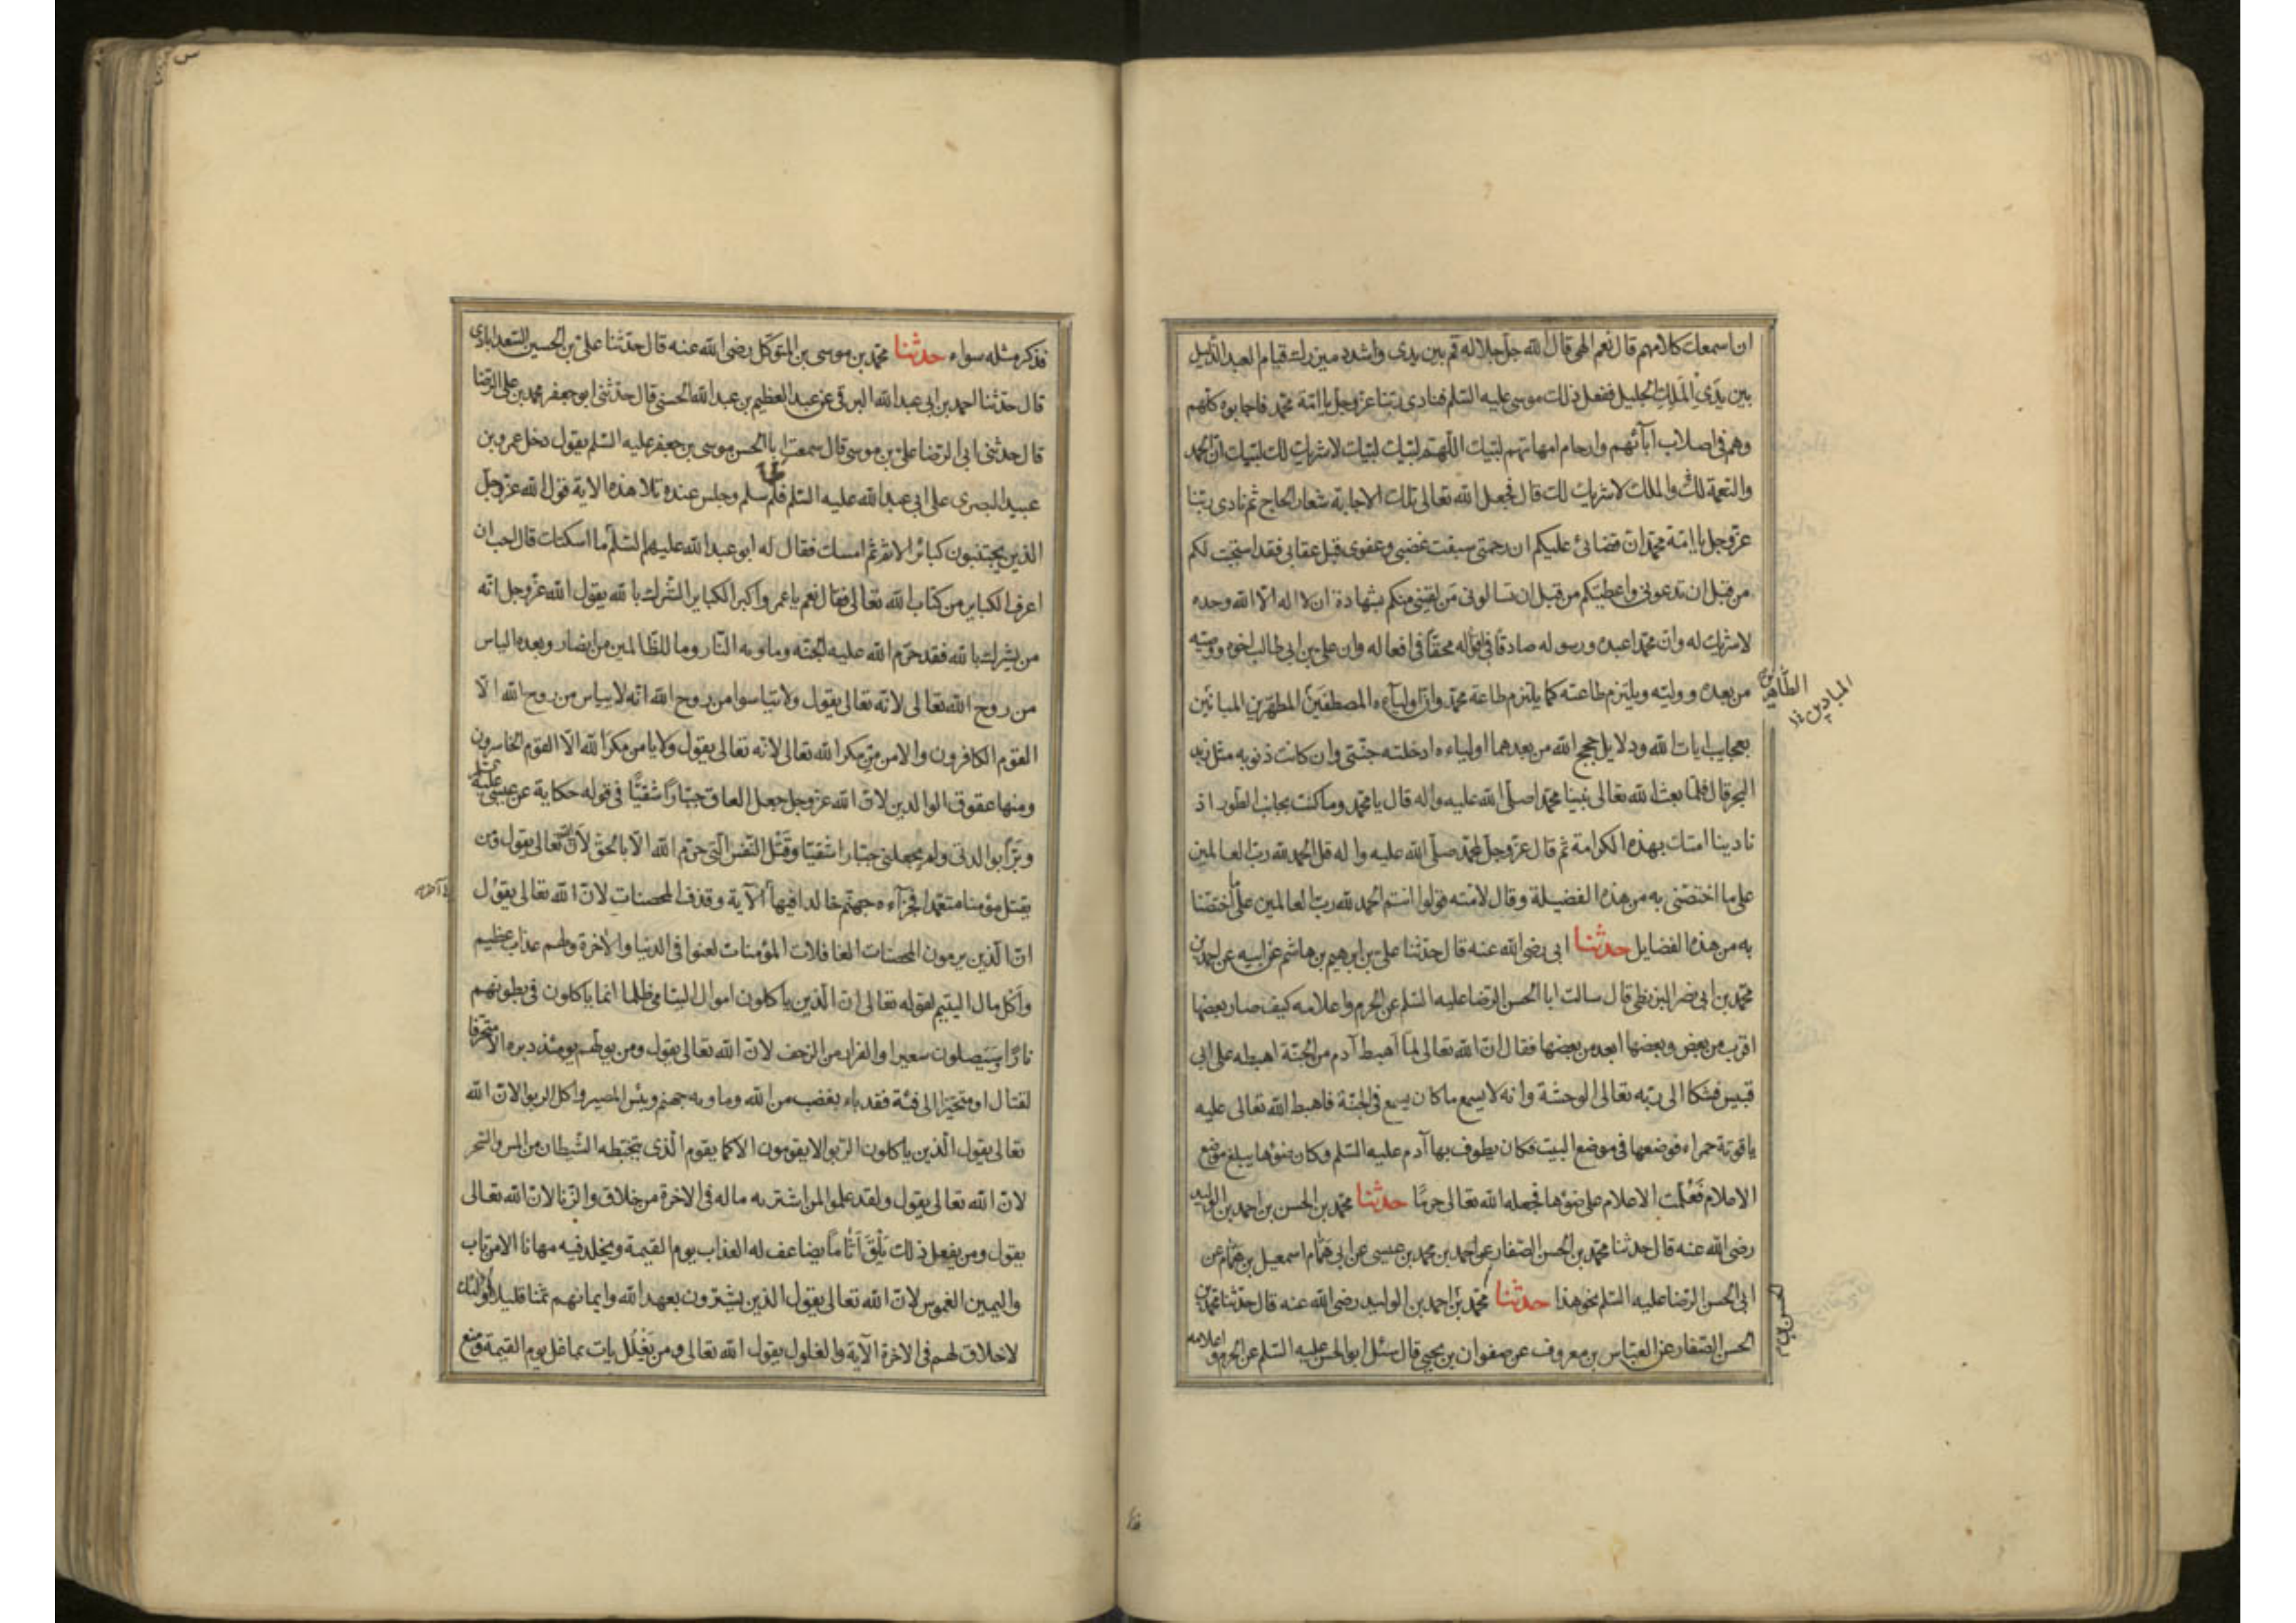 ان اسمعك كلامهم قال نعم الهى قال الله جل جلاله قم بين يدى واشدد ميزرك قيام العبد الذليل
بين يدي الملك الجليل ففعل ذلك موسى عليه السلم فنادى ربنا عز وجل يا امة محمد فاجابوه كلهم
وهم فى اصلاب آبائهم وارحام امهاتهم لبيك اللهم لبيك لبيك لا شريك لك لبيك ان الحمد
والنعمة لك والملك لا شريك لك قال فجعل الله تعالى تلك الاجابة شعار الحاج ثم نادى ربنا
عز وجل يا امة محمد ان قضائى عليكم ان رحمتى سبقت غضبى وعفوى قبل عقابى فقد استجبت لكم
من قبل ان تدعونى واعطيتكم من قبل ان تسالونى من لقينى منكم بشهادة ان لا اله الا الله وحده
لا شريك له وان محمدا عبده ورسوله صادقا فى اقواله محقا فى افعاله وان على بن ابى طالب اخوه ووصيه
من بعده ووليه ويلتزم طاعته كما يلتزم طاعة محمد وان اولياءه المصطفين المطهرين المبانين
الطاهرين
بعجايب ايات الله ودلايل حجج الله من بعدهما اولياءه ادخلته جنتى وان كانت ذنوبه مثل زبد
البحر قال فلما بعث الله تعالى نبينا محمدا صلى الله عليه واله قال يا محمد وما كنت بجانب الطور اذ
نادينا امتك بهذه الكرامة ثم قال عز وجل لمحمد صلى الله عليه واله قل الحمد لله رب العالمين
على ما اختصنى به من هذه الفضيلة وقال لامته قولوا انتم الحمد لله رب العالمين على ما اختصنا
به من هذه الفضايل حدثنا ابى رضى الله عنه قال حدثنا على بن ابرهيم بن هاشم عن ابيه عن احمد بن
محمد بن ابى نصر البزنطى قال سالت ابا الحسن الرضا عليه السلم عن الحرم واعلامه كيف صار بعضها
اقرب من بعض وبعضها ابعد من بعضها فقال ان الله تعالى لما اهبط آدم من الجنة اهبطه على ابى
قبيس فشكا الى ربه تعالى الوحشة وانه لا يسمع ما كان يسمع فى الجنة فاهبط الله تعالى عليه
ياقوتة حمراء فوضعها فى موضع البيت فكان يطوف بها آدم عليه السلم وكان ضوؤها يبلغ موضع
الاعلام فعلمت الاعلام على ضوئها فجعله الله تعالى حرما حدثنا محمد بن الحسن بن احمد بن الوليد
رضى الله عنه قال حدثنا محمد بن الحسن الصفار عن احمد بن محمد بن عيسى عن ابى همام اسمعيل بن همام عن
ابى الحسن الرضا عليه السلم نحو هذا حدثنا محمد بن احمد بن الوليد رضى الله عنه قال حدثنا محمد بن
الحسن بن
الحسن الصفار عن العباس بن معروف عن صفوان بن يحيى قال سئل ابو الحسن عليه السلم عن الحرم واعلامه
فذكر مثله سواء حدثنا محمد بن موسى بن المتوكل رضى الله عنه قال حدثنا على بن الحسين السعدابادى
قال حدثنا احمد بن ابى عبد الله البرقى عن عبد العظيم بن عبد الله الحسنى قال حدثنى ابو جعفر محمد بن على الرضا
قال حدثنى ابى الرضا على بن موسى قال سمعت ابا الحسن موسى بن جعفر عليه السلم يقول دخل عمرو بن
عبيد البصرى على ابى عبد الله عليه السلم فلما سلم وجلس عنده تلا هذه الاية قول الله عز وجل
الذين يجتنبون كبائر الاثم ثم امسك فقال له ابو عبد الله عليهم السلم ما اسكتك قال احب ان
اعرف الكباير من كتاب الله تعالى فقال نعم يا عمرو اكبر الكباير الشرك بالله يقول الله عز وجل انه
من يشرك بالله فقد حرم الله عليه الجنة وماويه النار وما للظالمين من انصار وبعده الياس
من روح الله تعالى لانه تعالى يقول ولا تياسوا من روح الله انه لا يياس من روح الله الا
القوم الكافرون والامن من مكر الله تعالى لانه تعالى يقول ولا يامن مكر الله الا القوم الخاسرون
ومنها عقوق الوالدين لان الله عز وجل جعل العاق جبارا شقيا فى قوله حكاية عن عيسى عليه
وبرا بوالدتى ولم يجعلنى جبارا شقيا وقتل النفس التى حرم الله الا بالحق لان الله تعالى يقول ومن
يقتل مؤمنا متعمدا فجزآءه جهنم خالدا فيها الآية وقذف المحصنات لان الله تعالى يقول
ان الذين يرمون المحصنات الغافلات المؤمنات لعنوا فى الدنيا والاخرة ولهم عذاب عظيم
واكل مال اليتيم لقوله تعالى ان الذين ياكلون اموال اليتامى ظلما انما ياكلون فى بطونهم
نارا وسيصلون سعيرا والفرار من الزحف لان الله تعالى يقول ومن يولهم يومئذ دبره الا متحرفا
لقتال او متحيزا الى فئة فقد باء بغضب من الله وماويه جهنم وبئس المصير واكل الربوا لان الله
تعالى يقول الذين ياكلون الربوا لا يقومون الا كما يقوم الذى يتخبطه الشيطان من المس والسحر
لان الله تعالى يقول ولقد علموا لمن اشتريه ماله فى الاخرة من خلاق والزنا لان الله تعالى
يقول ومن يفعل ذلك يلق اثاما يضاعف له العذاب يوم القيمة ويخلد فيه مهانا الا من تاب
واليمين الغموس لان الله تعالى يقول الذين يشترون بعهد الله وايمانهم ثمنا قليلا اولئك
لا خلاق لهم فى الاخرة الآية والغلول يقول الله تعالى ومن يغلل يات بما غل يوم القيمة ومنع